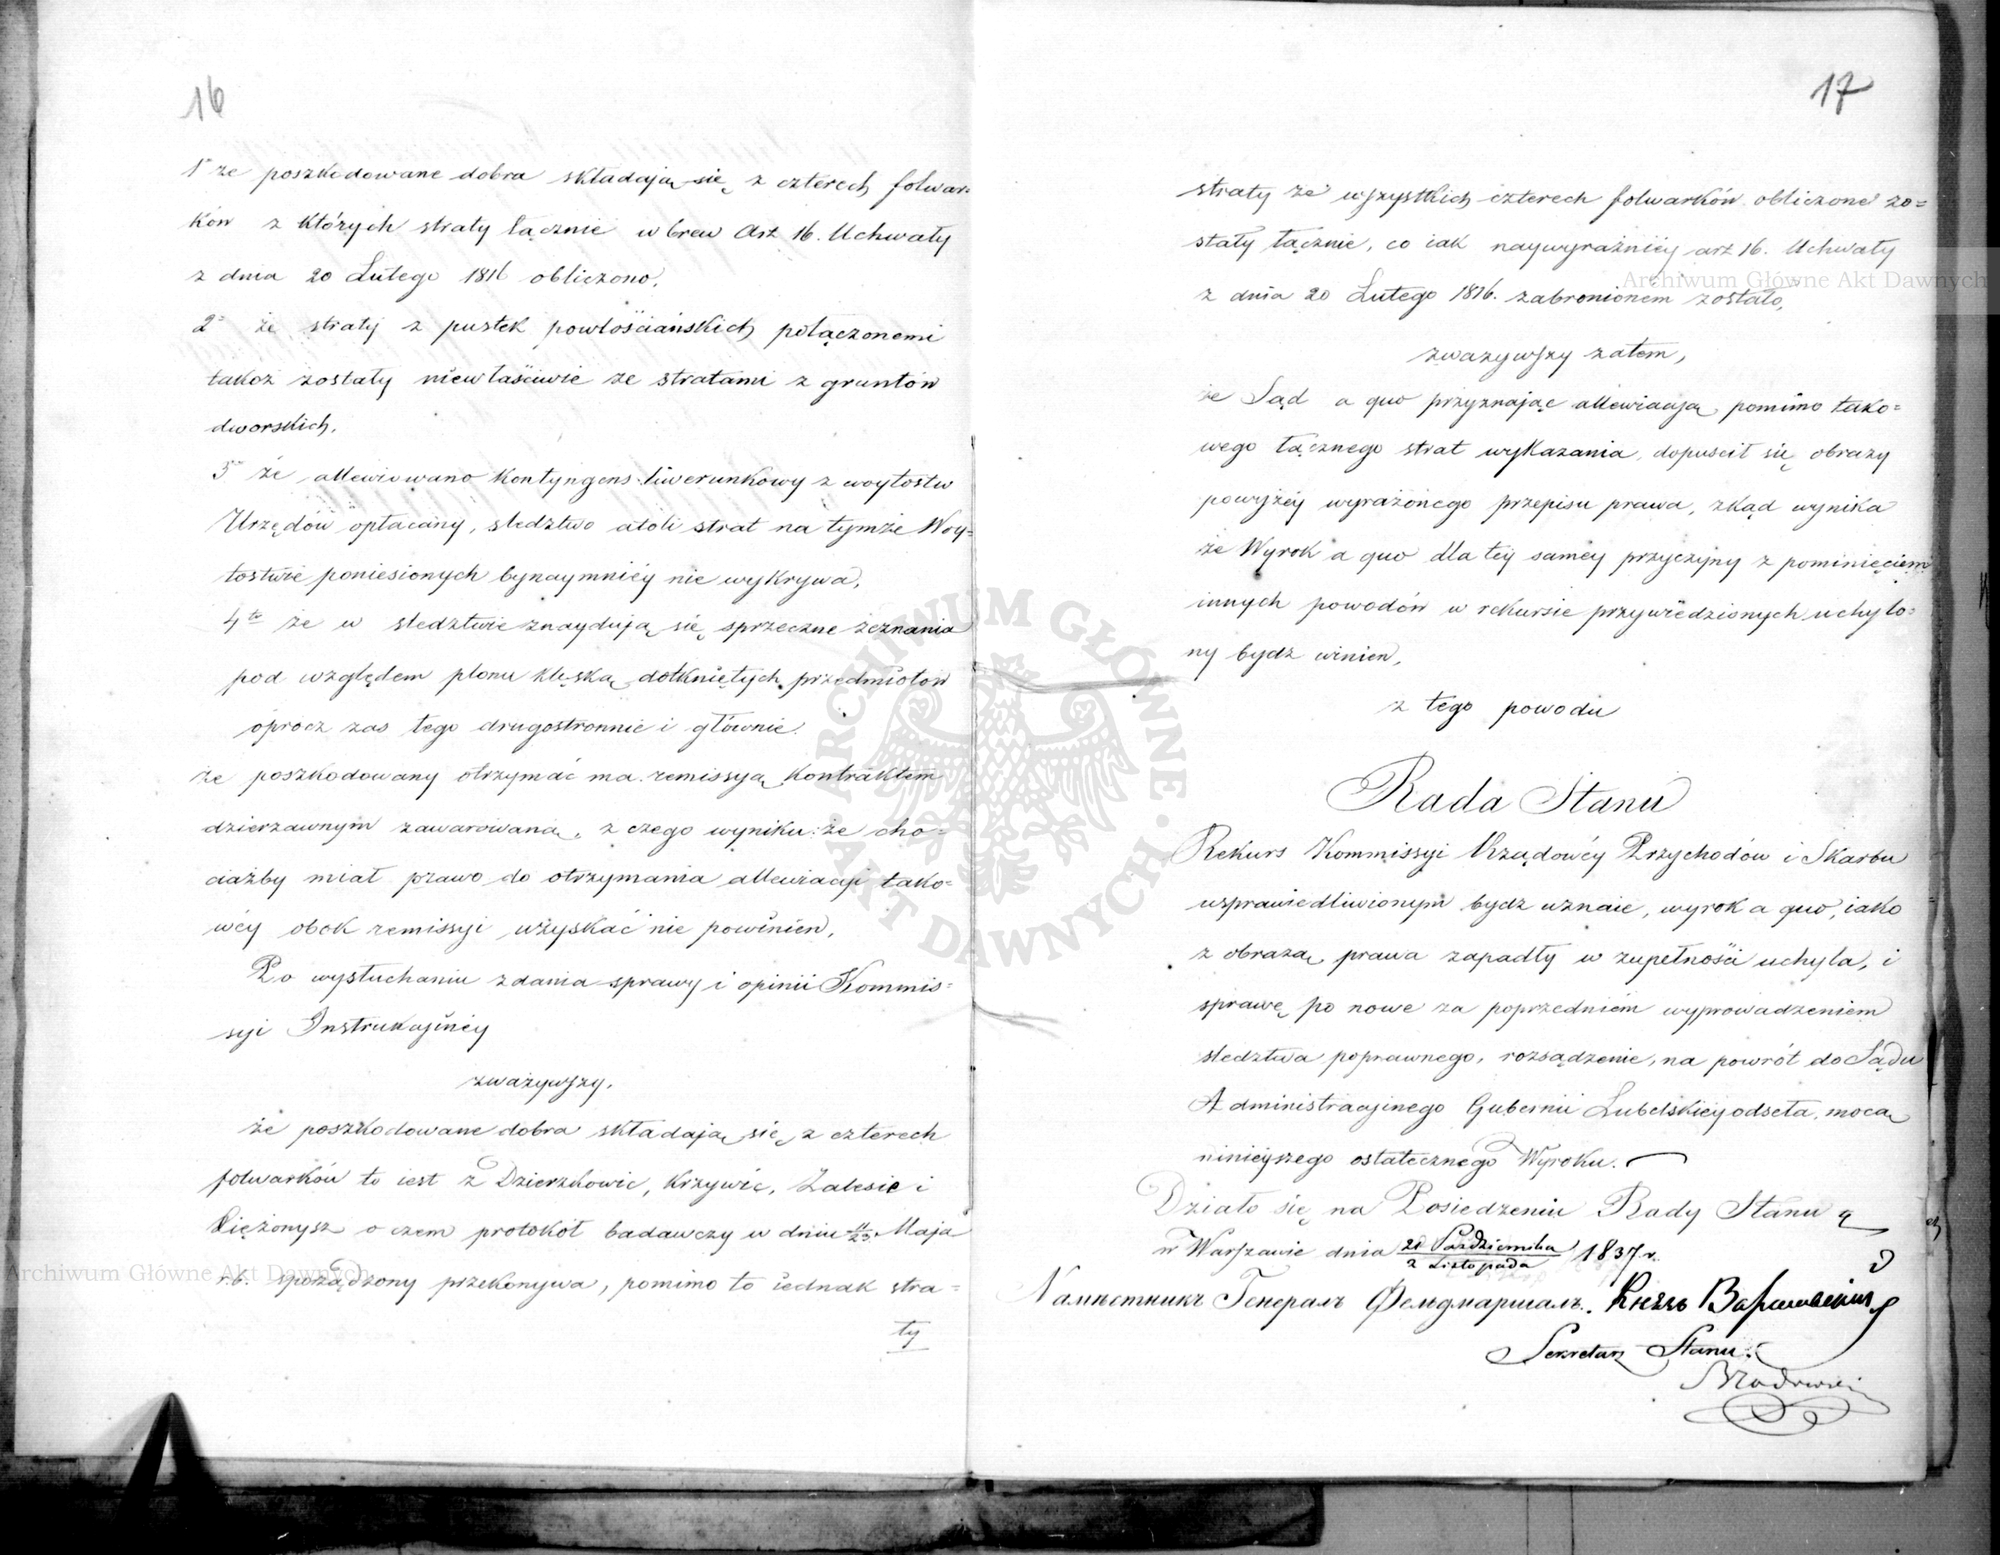 16
1° że poszkodowane dobra składają się z czterech folwar=
ków z których straty łącznie wbrew Art 16. Uchwały
z dnia 20 Lutego 1816 obliczono,
2° że straty z pustek powłościańskich połączonemi
takoż zostały niewłaściwie ze stratami z gruntów
dworskich,
3° że allewiowano kontyngens liwerunkowy z woytostw
Urzędów opłacany, śledztwo atoli strat na tymże Woy=
tostwie poniesionych bynaymniéy nie wykrywa,
4te że w śledztwie znaydują się sprzeczne zeznania
pod względem plonu klęską dotkniętych przedmiotów
oprócz zas tego drugostronnie i głównie.
że poszkodowany otrzymać ma remissyą kontraktem
dzierzawnym zawarowaną, z czego wyniku: że cho=
ciażby miał prawo do otrzymania allewiacyi tako=
wéy obok remissyi uzyskać nie powinien,
Po wysłuchaniu zdania sprawy i opinii Kommis=
syi Instrukcyinéy
zważywszy,
że poszkodowane dobra składają się z czterech
folwarków to iest z Dzierzkowic, Krzywie, Zalesie i
Xiężonysz o czem protokół badawczy w dniu 11/23 Maja
r.b. sporządzony przekonywa, pomimo to iednak stra=
ty
17
straty ze wszystkich czterech folwarków obliczone zo=
stały łącznie, co iak naywyraźniéy art 16. Uchwały
z dnia 20 Lutego 1816. zabronionem zostało,
zważywszy zatem,
że Sąd a quo przyznając allewiacyą pomimo tako=
wego łącznego strat wykazania, dopuscił się obrazy
powyżéy wyrażonego przepisu prawa, zkąd wynika
że Wyrok a quo dla téy saméy przyczyny z pominięciem
innych powodów w rekursie przywiedzionych uchylo=
ny bydz winien,
z tego powodu
Rada Stanu
Rekurs Kommissyi Rządowéy Przychodów i Skarbu
usprawiedliwionym bydz uznaie, wyrok a quo, iako
z obrazą prawa zapadły w zupełności uchyla, i
sprawę po nowe za poprzedniém wyprowadzeniem
śledztwa poprawnego, rozsądzenie, na powrót do Sądu
Administracyinego Gubernii Lubelskiéy odseła, mocą
ninieyszego ostatecznego Wyroku.
Działo się na Posiedzeniu Rady Stanu
w Warszawie dnia 21 Października / 2 Listopada 1837 r.
Намѣстникъ Генералъ Фельдмаршалъ. Князь Варшавскій
Sekretarz Stanu.
Archiwum Główne Akt Dawnych
Archiwum Główne Akt Dawnych
ARCHIWUM GŁÓWNE
AKT DAWNYCH